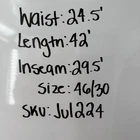 Waist: 24.5'
Length: 42'
Inseam: 29.5'
Size: 46/30
SKU: Jul224